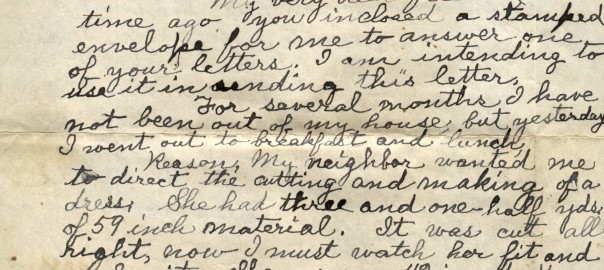 My very
time ago you inclosed a stamped
envelope for me to answer one
of your letters. I am intending to
use it in sending this letter.
For several months I have
not been out of my house, but yesterday
I went out to breakfast and lunch,
Reason, My neighbor wanted me
to direct the cutting and making of a
dress; She had three and one-half yds,
of 59 inch material. It was cut all
right, now I must watch her fit and